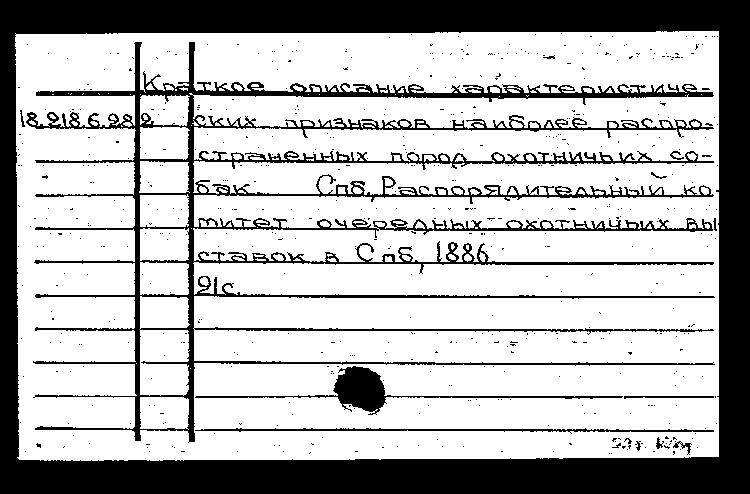 Краткое описание характеристиче-
18.218.6.282 ских признаков наиболее распро-
страненных пород охотничьих со-
бак. Спб., Распорядительный ко-
митет очередных охотничьих вы-
ставок в Спб, 1886
21с.